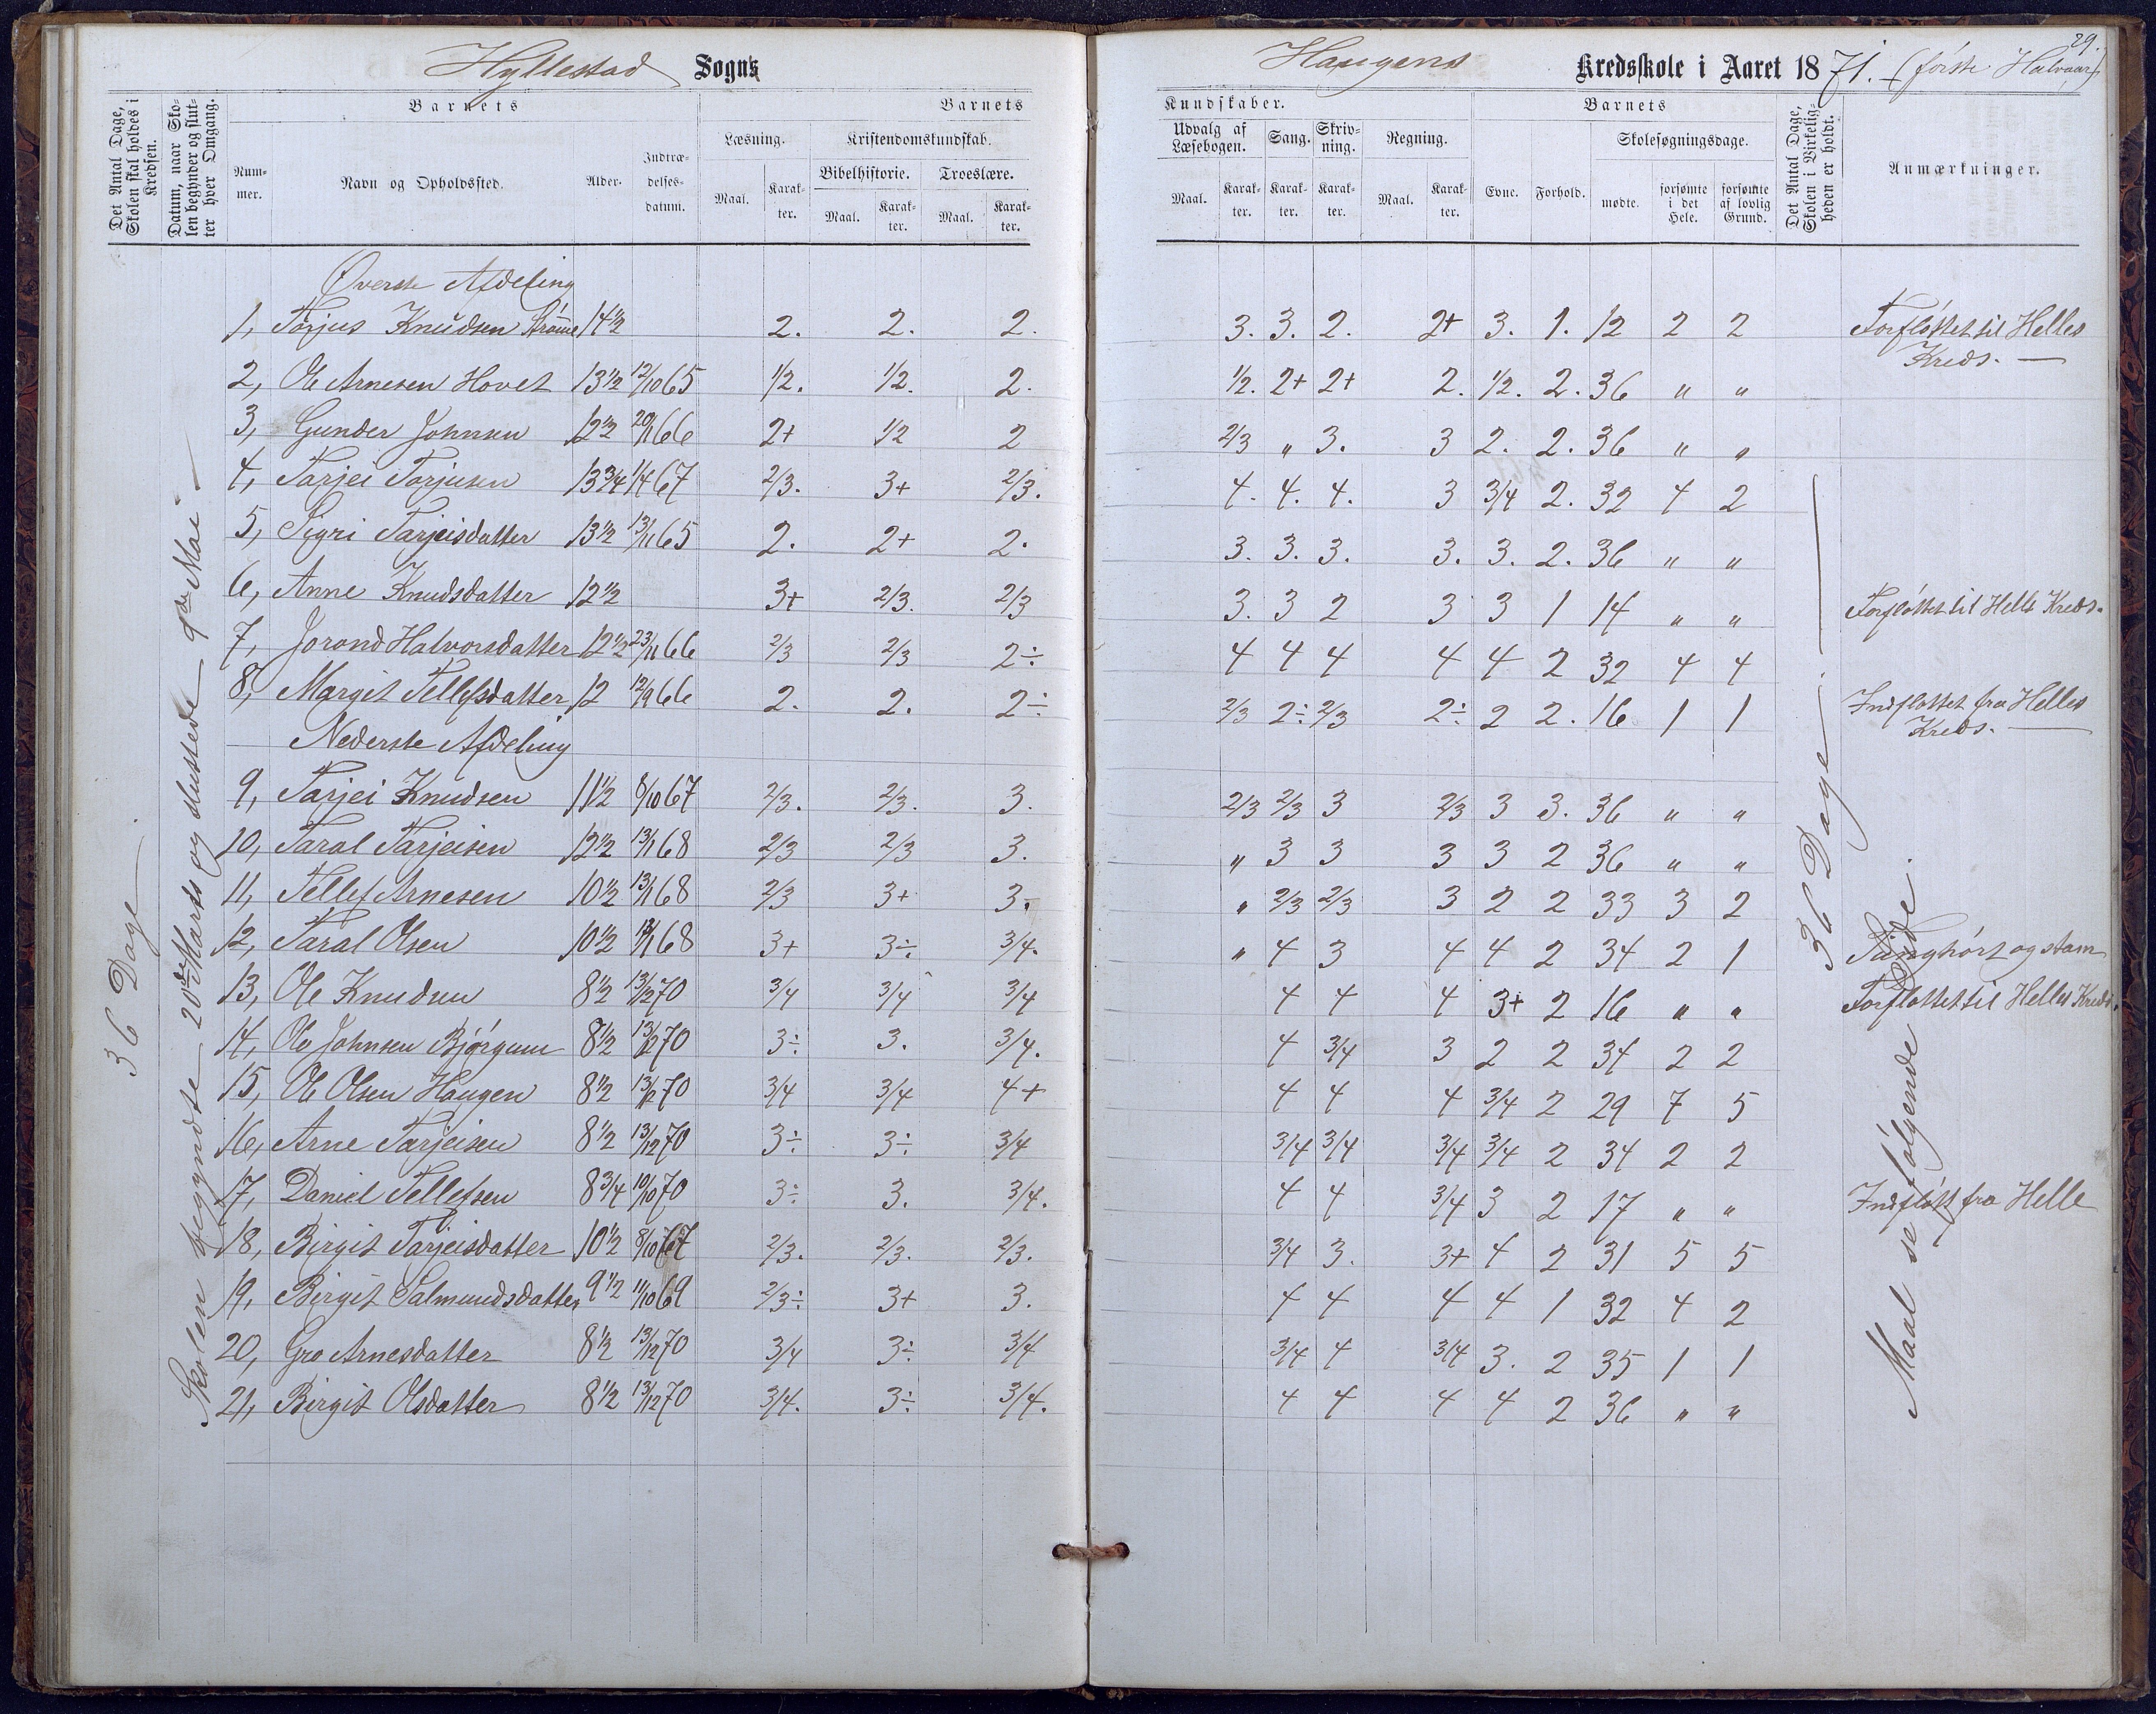 29.
Hyllestad Sogns Haugens Kredsskole i Aaret 1871. (første Halvaar)
Det Antal Dage, Skolen skal holdes i Kredsen.
Datum, naar Skolen begynder og slutter hver Omgang.
Barnets
Nummer.
Navn og Opholdssted.
Alder.
Indtrædelsesdatum.
Barnets
Læsning.
Maal. Karakter.
Kristendomskundskab.
Bibelhistorie.
Maal. Karakter.
Troeslære.
Maal. Karakter.
Kundskaber.
Udvalg af Læsebogen.
Maal. Karakter.
Sang.
Karakter.
Skrivning.
Karakter.
Regning.
Maal. Karakter.
Barnets
Evne. Forhold.
Skolesøgningsdage.
mødte.
forsømte i det Hele.
forsømte af lovlig Grund.
Det Antal Dage, Skolen i Virkeligheden er holdt.
Anmærkninger.
36 Dage
Skolen begyndte 20de Marts og sluttede 9de Mai
Øverste Afdeling
1, Torjus Knudsen Strømme 14½ 2. 2. 2. 3. 3. 2. 2+ 3. 1. 12 2 2 Forfløttet til Helles Kreds.
2, Ole Arnesen Hovet 13½ 12/10 65 1/2. 1/2. 2. 1/2. 2+ 2+ 2. 1/2. 2. 36 " "
3, Gunder Johnsen 12½ 20/11 66 2+ 1/2 2 2/3 " 3. 3 2. 2. 36 " "
4, Tarjei Torjusen 13¾ 1/4 67 2/3. 3+ 2/3. 4. 4. 4. 3 3/4 2. 32 4 2
5, Sigri Tarjeisdatter 13½ 13/11 65 2. 2+ 2. 3. 3. 3. 3. 3. 2. 36 " "
6, Anne Knudsdatter 12½ 3+ 2/3. 2/3 3. 3 2 3 3 1 14 " " Forfløttet til Helle Kreds.
7, Jorond Halvorsdatter 12½ 23/11 66 2/3 2/3 2÷ 4 4 4 4 4 2 32 4 4
8, Margit Tellefsdatter 12 12/9 66 2. 2. 2÷ 2/3 2÷ 2/3 2÷ 2 2. 16 1 1 Indflottet fra Helles Kreds.
Nederste Afdeling
9, Tarjei Knudsen 11½ 8/10 67 2/3. 2/3. 3. 2/3 2/3 3 2/3 3 3. 36 " "
10, Taral Tarjeisen 12½ 13/1 68 2/3 2/3 3. " 3 3 3 3 2 36 " "
11, Tellef Arnesen 10½ 13/1 68 2/3 3+ 3. " 2/3 2/3 3 2 2 33 3 2
12, Taral Olsen 10½ 13/1 68 3+ 3÷ 3/4. " 4 3 4 4 2 34 2 1 Tunghørt og stam
13, Ole Knudsen 8½ 13/12 70 3/4 3/4 3/4 4 4 4 3+ 2 16 " " Forflottet til Helles Kreds.
14, Ole Johnsen Bjørgum 8½ 13/12 70 3÷ 3. 3/4. 4 3/4 3 2 2 34 2 2
15, Ole Olsen Haugen 8½ 13/12 70 3/4 3/4 4+ 4 4 4 3/4 2 29 7 5
16, Arne Tarjeisen 8½ 13/12 70 3÷ 3÷ 3/4 3/4 3/4 3/4 3/4 2 34 2 2
17, Daniel Tellefsen 8¾ 10/10 70 3÷ 3. 3/4. 4 4 3/4 3 2 17 " " Indfløtt fra Helle
18, Birgit Tarjeisdatter 10½ 8/10 67 2/3. 2/3. 2/3. 3/4 3. 3+ 4 2 31 5 5
19, Birgit Salmundsdatter 9½ 11/10 69 2/3÷ 3+ 3. 4 4 4 4 1 32 4 2
20, Gro Arnesdatter 8½ 13/12 70 3/4 3÷ 3/4 3/4 4 3/4 3. 2 35 1 1
21, Birgit Olsdatter 8½ 13/12 70 3/4. 3÷ 3/4. 4 4 4 4 2 36 " "
36 Dage
Maal se følgende Side.